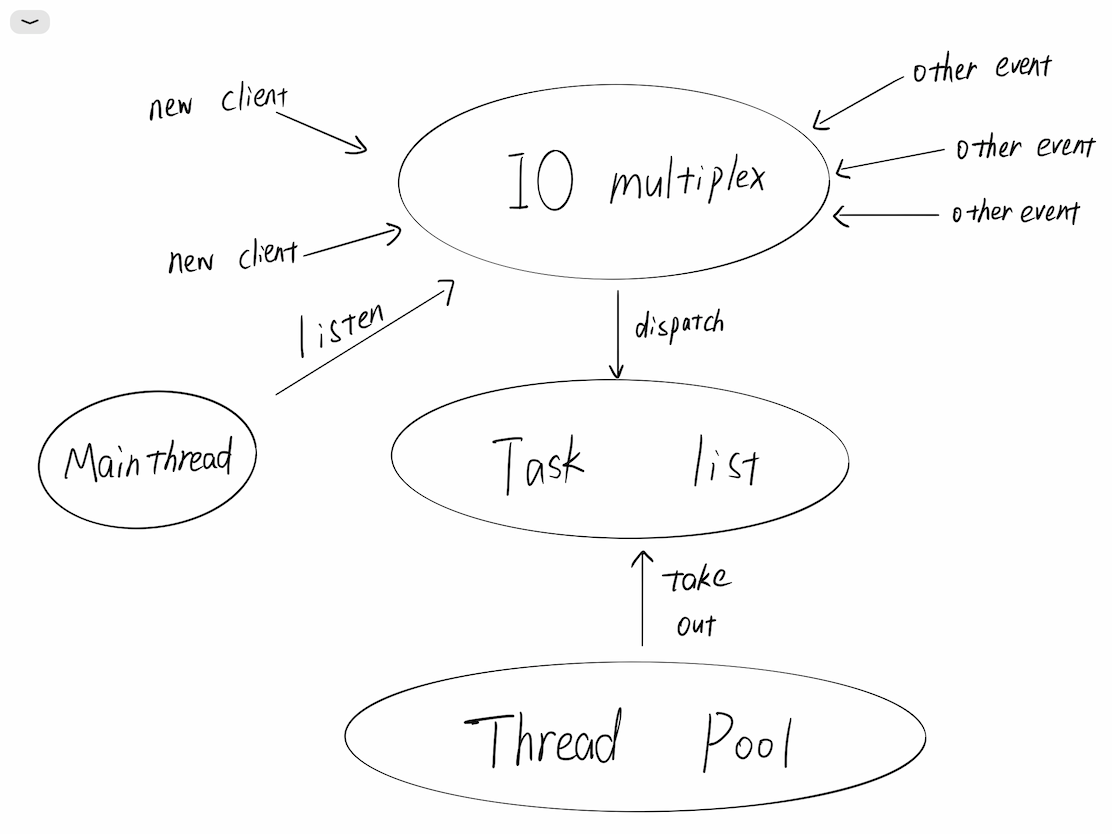 other event
new client
other event
IO multiplex
other event
new client
listen
dispatch
Main thread
Task list
Take
out
Thread Pool